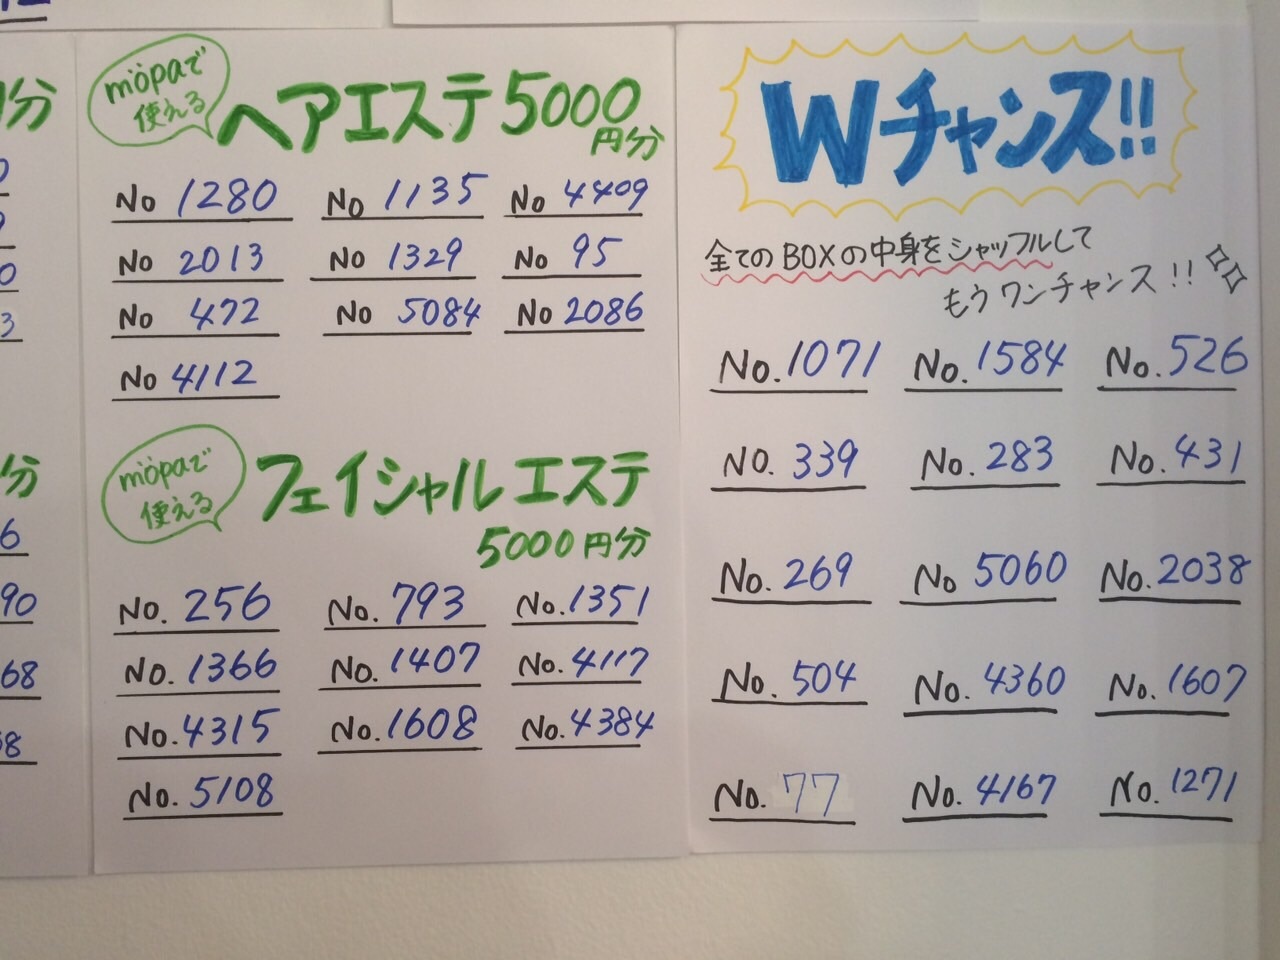 円分
90
68
mopaで
使える
ヘアエステ 5000
円分
No 1280 No 1135 No 4409
No 2013 No 1329 No 95
No 472 No 5084 No 2086
No 4112
mopaで
使える
フェイシャルエステ
5000円分
No. 256 No. 793 No. 1351
No. 1366 No. 1407 No. 4117
No. 4315 No. 1608 No. 4384
No. 5108
Wチャンス!!
全てのBOXの中身をシャッフルして
もうワンチャンス!!
No. 1071 No. 1584 No. 526
NO. 339 No. 283 No. 431
No. 269 No 5060 No. 2038
No. 504 No. 4360 No. 1607
No. 77 No. 4167 No. 1271